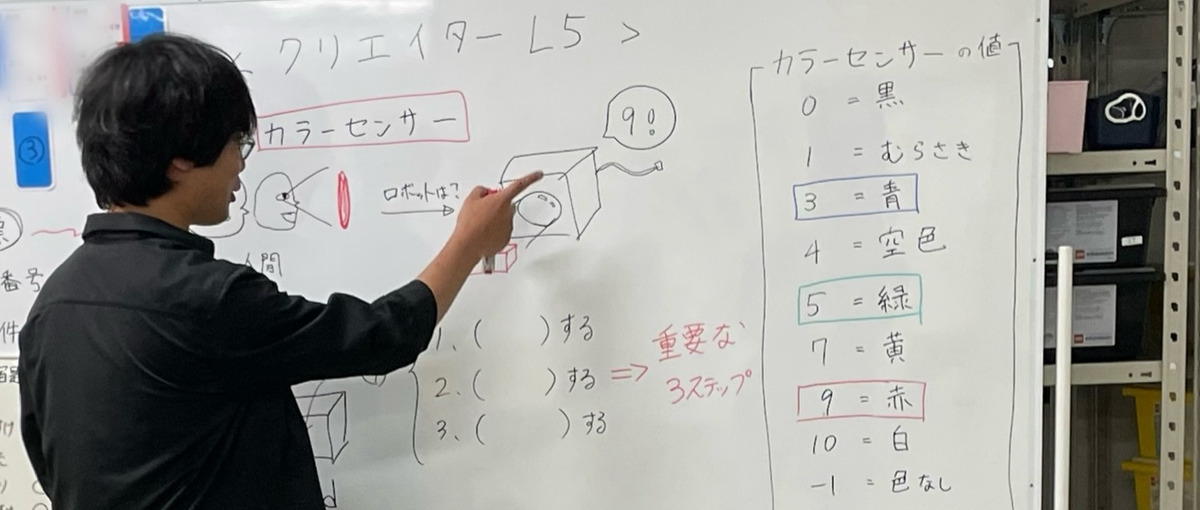 クリエイター L5 >
カラーセンサー
ロボットは?
9!
③
番号
人間
件
1、(   )する
2、(   )する
3、(   )する
=> 重要な
3ステップ
カラーセンサーの値
0 = 黒
1 = むらさき
3 = 青
4 = 空色
5 = 緑
7 = 黄
9 = 赤
10 = 白
-1 = 色なし